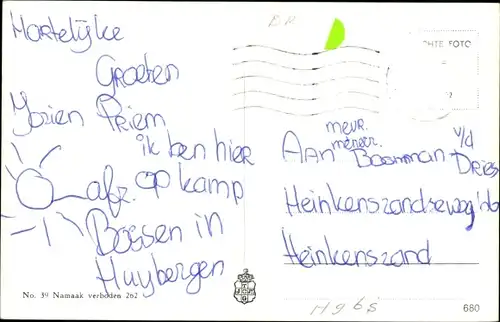 Hartelijke
Groeten
Jozien Priem
ik ben hier
afz. op kamp
Bossen in
Huybergen
No. 39 Namaak verboden 262
BR
CHTE FOTO
mevr.
meneer.
Aan Boonman v/d
Dries
Heinkenszandseweg
Heinkenszand
H965
680